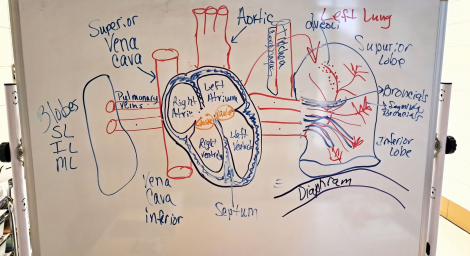 Superior
Vena
Cava
Aortic
Trachea
alveoli
Left Lung
Superior
Lobe
Pulmonary
veins
3 lobes
SL
IL
ML
Right
Atri
Left
Atrium
Right
ventric
Left
Ventric
Broncials
Broncials
Interior
Lobe
Vena
Cava
inferior
Septum
Diaphram